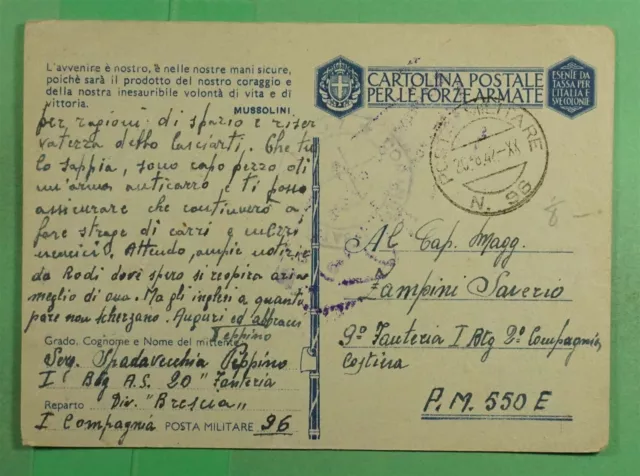 L'avvenire è nostro, è nelle nostre mani sicure,
poichè sarà il prodotto del nostro coraggio e
della nostra inesauribile volontà di vita e di
vittoria.
MUSSOLINI
per ragioni di spazio e riser
vatezza debbo lasciarti. Che tu
lo sappia, sono capo pezzo di
un'arma anticarro e ti posso
assicurare che continuerò a
fare strage di carri e mezzi
nemici. Attendo, ampie notizie
da Rodi dove spero si respira aria
meglio di qua. Ma gli inglesi a quanto
pare non scherzano. Auguri ed abbracci
Peppino
Grado, Cognome e Nome del mittente
Serg. Spadavecchia Peppino
I° Btg A.S. 20° Fanteria
Reparto Div. "Brescia"
I Compagnia POSTA MILITARE 96
CARTOLINA POSTALE
PER LE FORZE ARMATE
ESENTE DA
TASSA PER
L'ITALIA E
SUE COLONIE
POSTA MILITARE
N. 96
Al Cap. Magg.
Zampini Saverio
9° Fanteria I Btg 2° Compagnia
P.M. 550 E